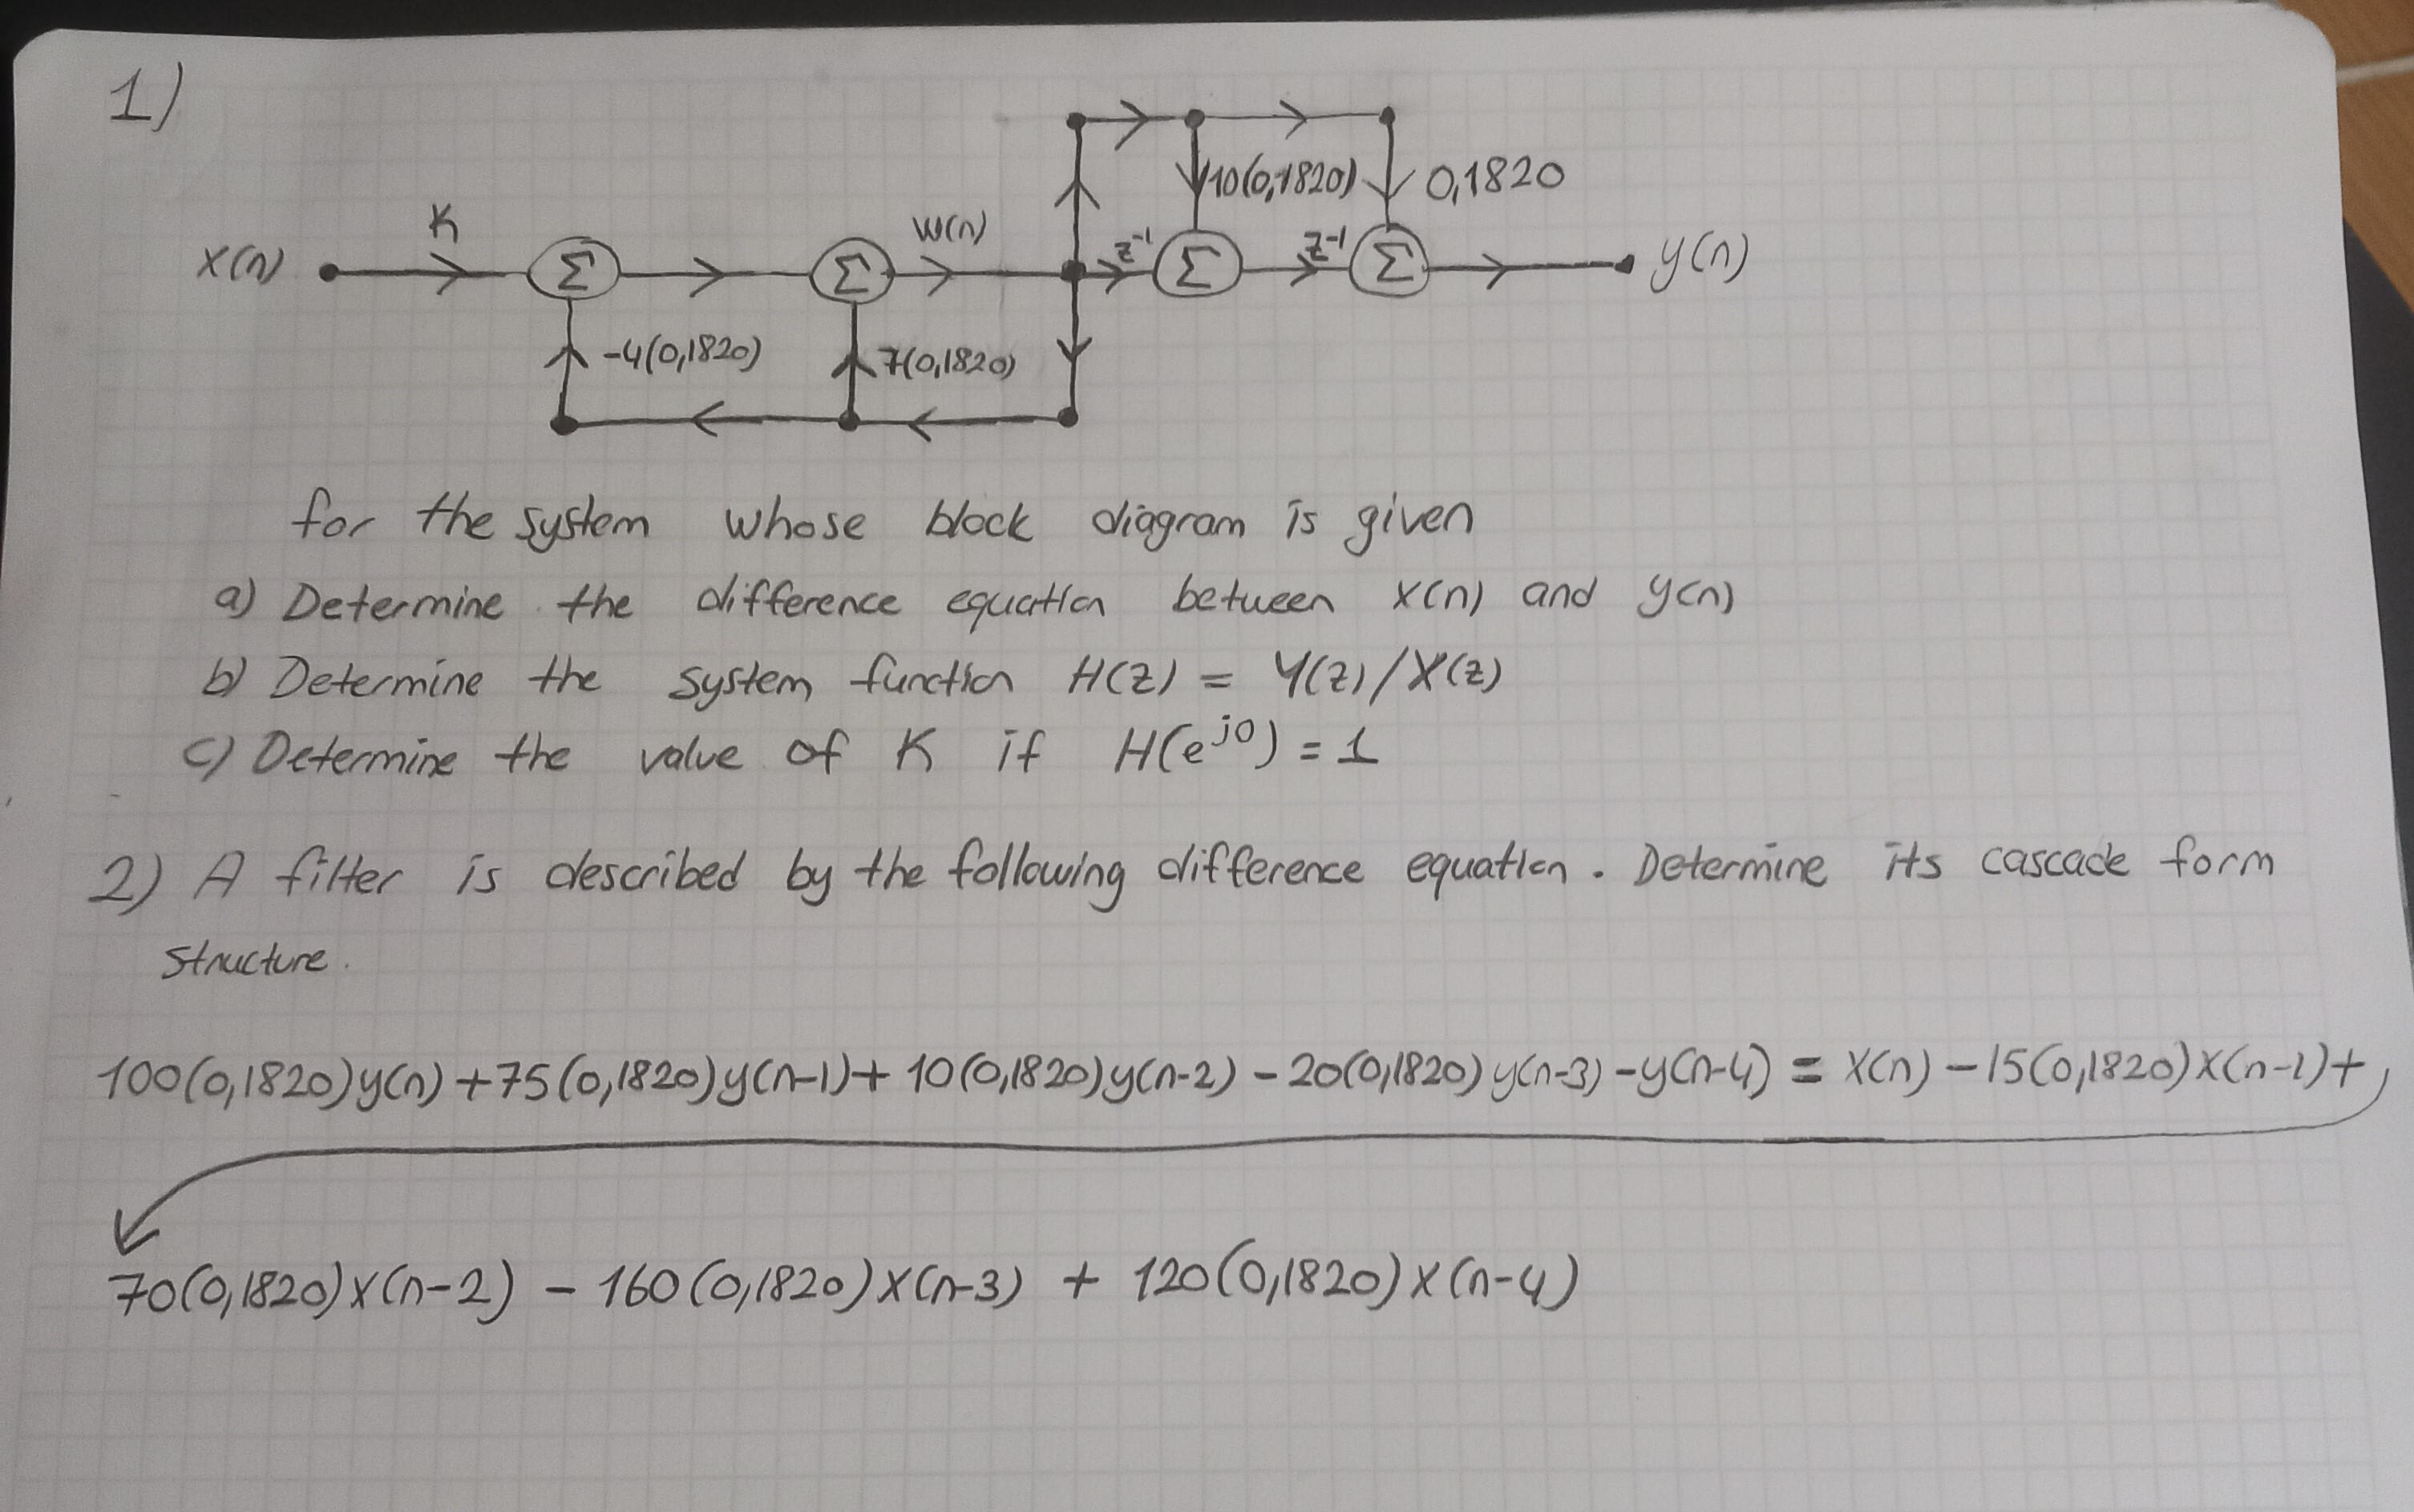 1)
10(0,1820) 0,1820
K w(n)
x(n) Σ Σ z⁻¹ Σ z⁻¹ Σ y(n)
-4(0,1820) 7(0,1820)
for the system whose block diagram is given
a) Determine the difference equation between x(n) and y(n)
b) Determine the system function H(z) = Y(z)/X(z)
c) Determine the value of K if H(e^j0) = 1
2) A filter is described by the following difference equation. Determine its cascade form
structure.
100(0,1820)y(n) +75(0,1820)y(n-1)+ 10(0,1820)y(n-2) - 20(0,1820)y(n-3) -y(n-4) = x(n) -15(0,1820)x(n-1)+
70(0,1820)x(n-2) - 160(0,1820)x(n-3) + 120(0,1820)x(n-4)